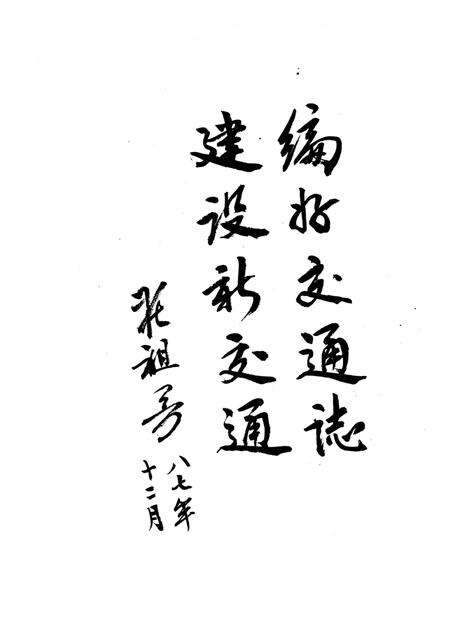 编好交通誌
建设新交通
祖芳
八七年
十二月